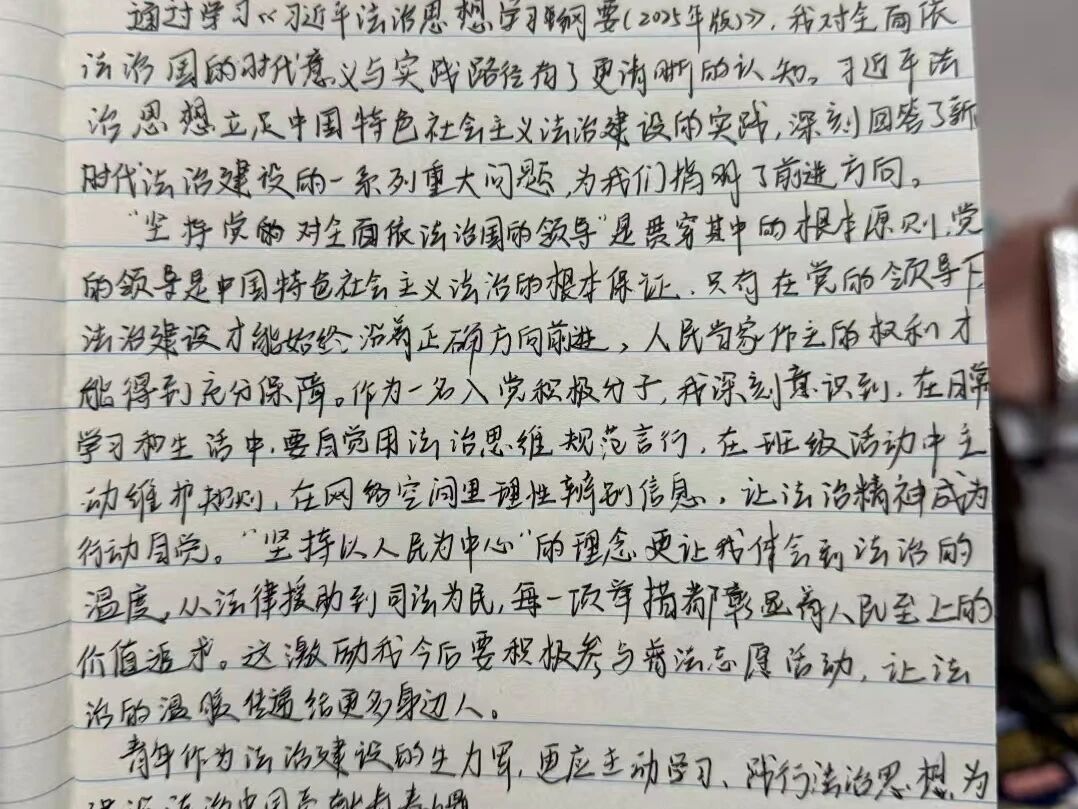 通过学习《习近平法治思想学习纲要(2025年版)》,我对全面依
法治国的时代意义与实践路径有了更清晰的认知。习近平法
治思想立足中国特色社会主义法治建设的实践,深刻回答了新
时代法治建设的一系列重大问题,为我们指明了前进方向。
"坚持党的对全面依法治国的领导"是贯穿其中的根本原则,党
的领导是中国特色社会主义法治的根本保证,只有在党的领导下,
法治建设才能始终沿着正确方向前进,人民当家作主的权利才
能得到充分保障。作为一名入党积极分子,我深刻意识到,在日常
学习和生活中,要自觉用法治思维规范言行,在班级活动中主
动维护规则,在网络空间里理性辨别信息,让法治精神成为
行动自觉。"坚持以人民为中心"的理念更让我体会到法治的
温度,从法律援助到司法为民,每一项举措都彰显着人民至上的
价值追求。这激励我今后要积极参与普法志愿活动,让法
治的温暖传递给更多身边人。
青年作为法治建设的生力军,更应主动学习、践行法治思想,为
建设法治中国贡献青春力量